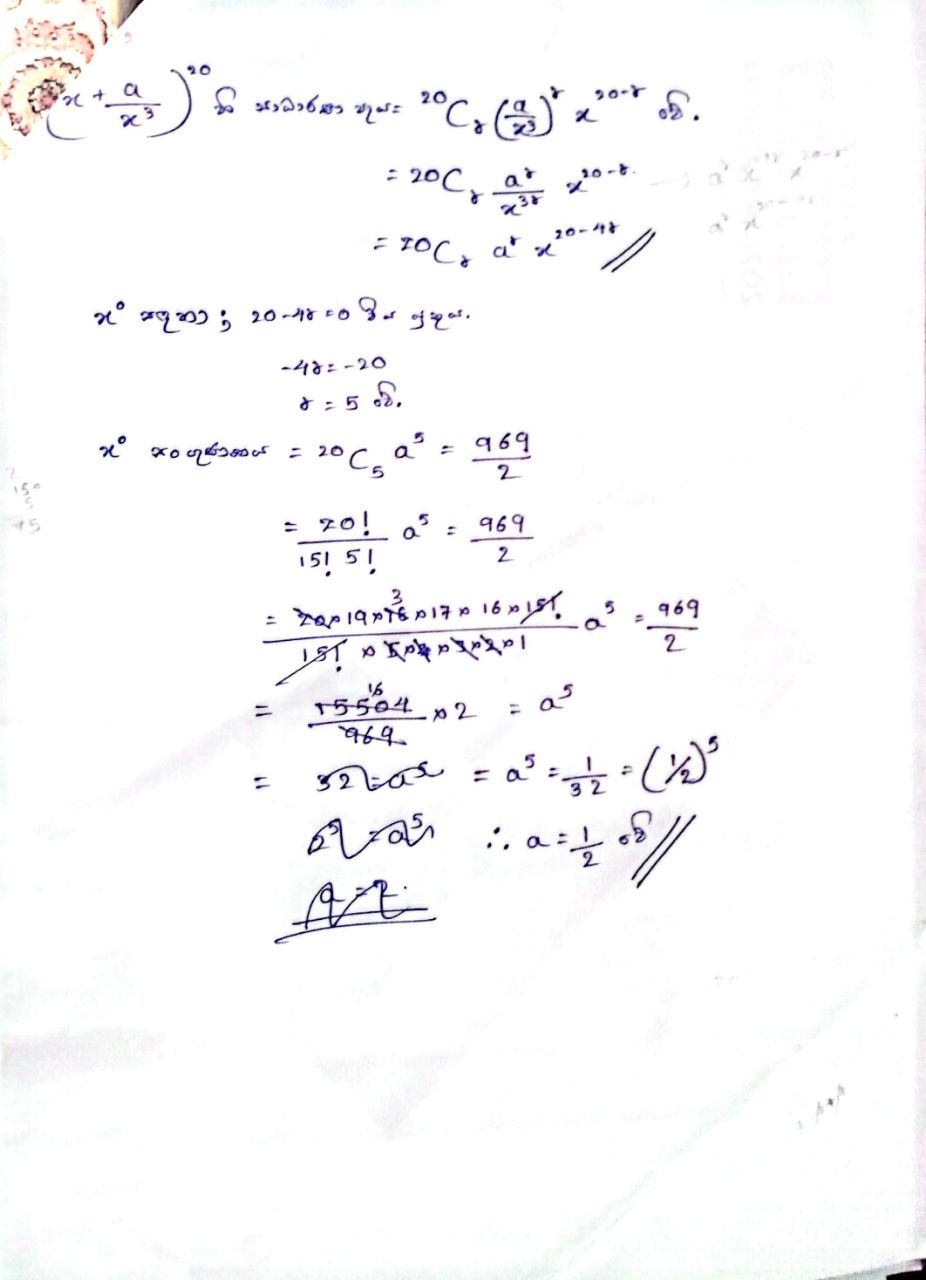 (x + a/x³)²⁰ හි සාධාරණ පදය = ²⁰Cᵣ (a/x³)ʳ x²⁰⁻ʳ වේ.
= 20Cᵣ aʳ/x³ʳ x²⁰⁻ʳ.
= 20Cᵣ aʳ x²⁰⁻⁴ʳ //
x⁰ සඳහා ; 20-4r=0 විය යුතුය.
-4r = -20
r = 5 වේ.
x⁰ සංගුණකය = 20C₅ a⁵ = 969/2
= 20!/15! 5! a⁵ = 969/2
= 20×19×18×17×16×15!/15!×5×4×3×2×1 a⁵ = 969/2
3
= 15504/969 ×2 = a⁵
16
= 32 = a⁵ = a⁵ = 1/32 = (1/2)⁵
2⁵ = a⁵ ∴ a = 1/2 වේ //
a = 2.